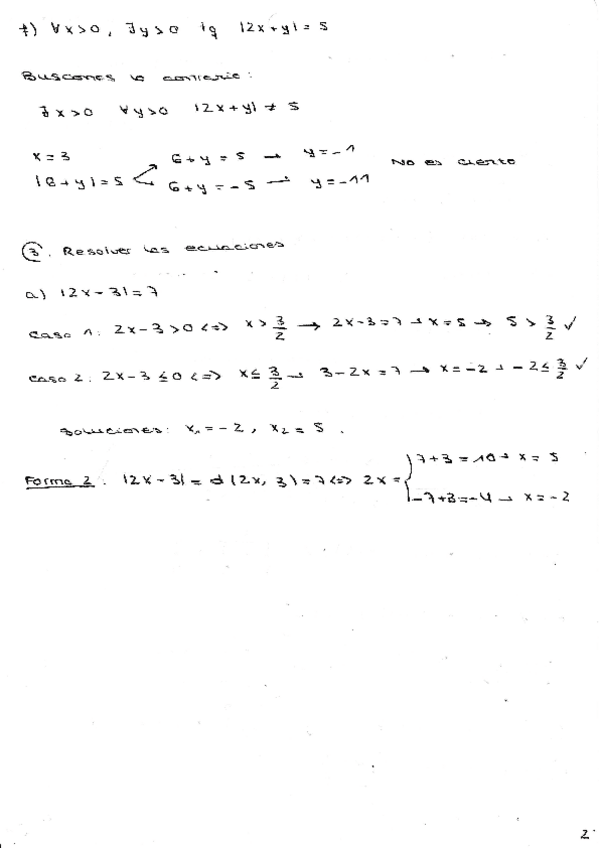 f) ∀x>0, ∃y>0 tq |2x+y|=5
Buscamos lo contrario:
∃x>0 ∀y>0 |2x+y| ≠ 5
x=3
|6+y|=5
6+y=5 → y=-1
6+y=-5 → y=-11
No es cierto
③. Resolver las ecuaciones
a) |2x-3|=7
Caso 1: 2x-3>0 <=> x>3/2 → 2x-3=7 → x=5 → 5>3/2 ✓
Caso 2: 2x-3≤0 <=> x≤3/2 → 3-2x=7 → x=-2 → -2≤3/2 ✓
Soluciones: x₁=-2, x₂=5.
Forma 2: |2x-3|=d(2x,3)=7 <=> 2x= { 7+3=10 → x=5
-7+3=-4 → x=-2
2